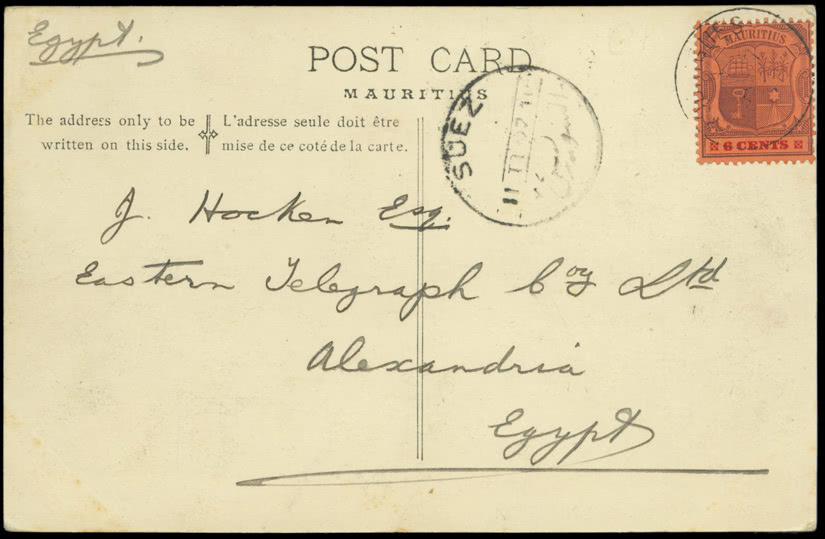 Egypt.
POST CARD
MAURITIUS
The address only to be
written on this side.
L'adresse seule doit être
mise de ce coté de la carte.
MAURITIUS
6 CENTS
SUEZ
السويس
J. Hocken Esq.
Eastern Telegraph Coy Ltd
Alexandria
Egypt